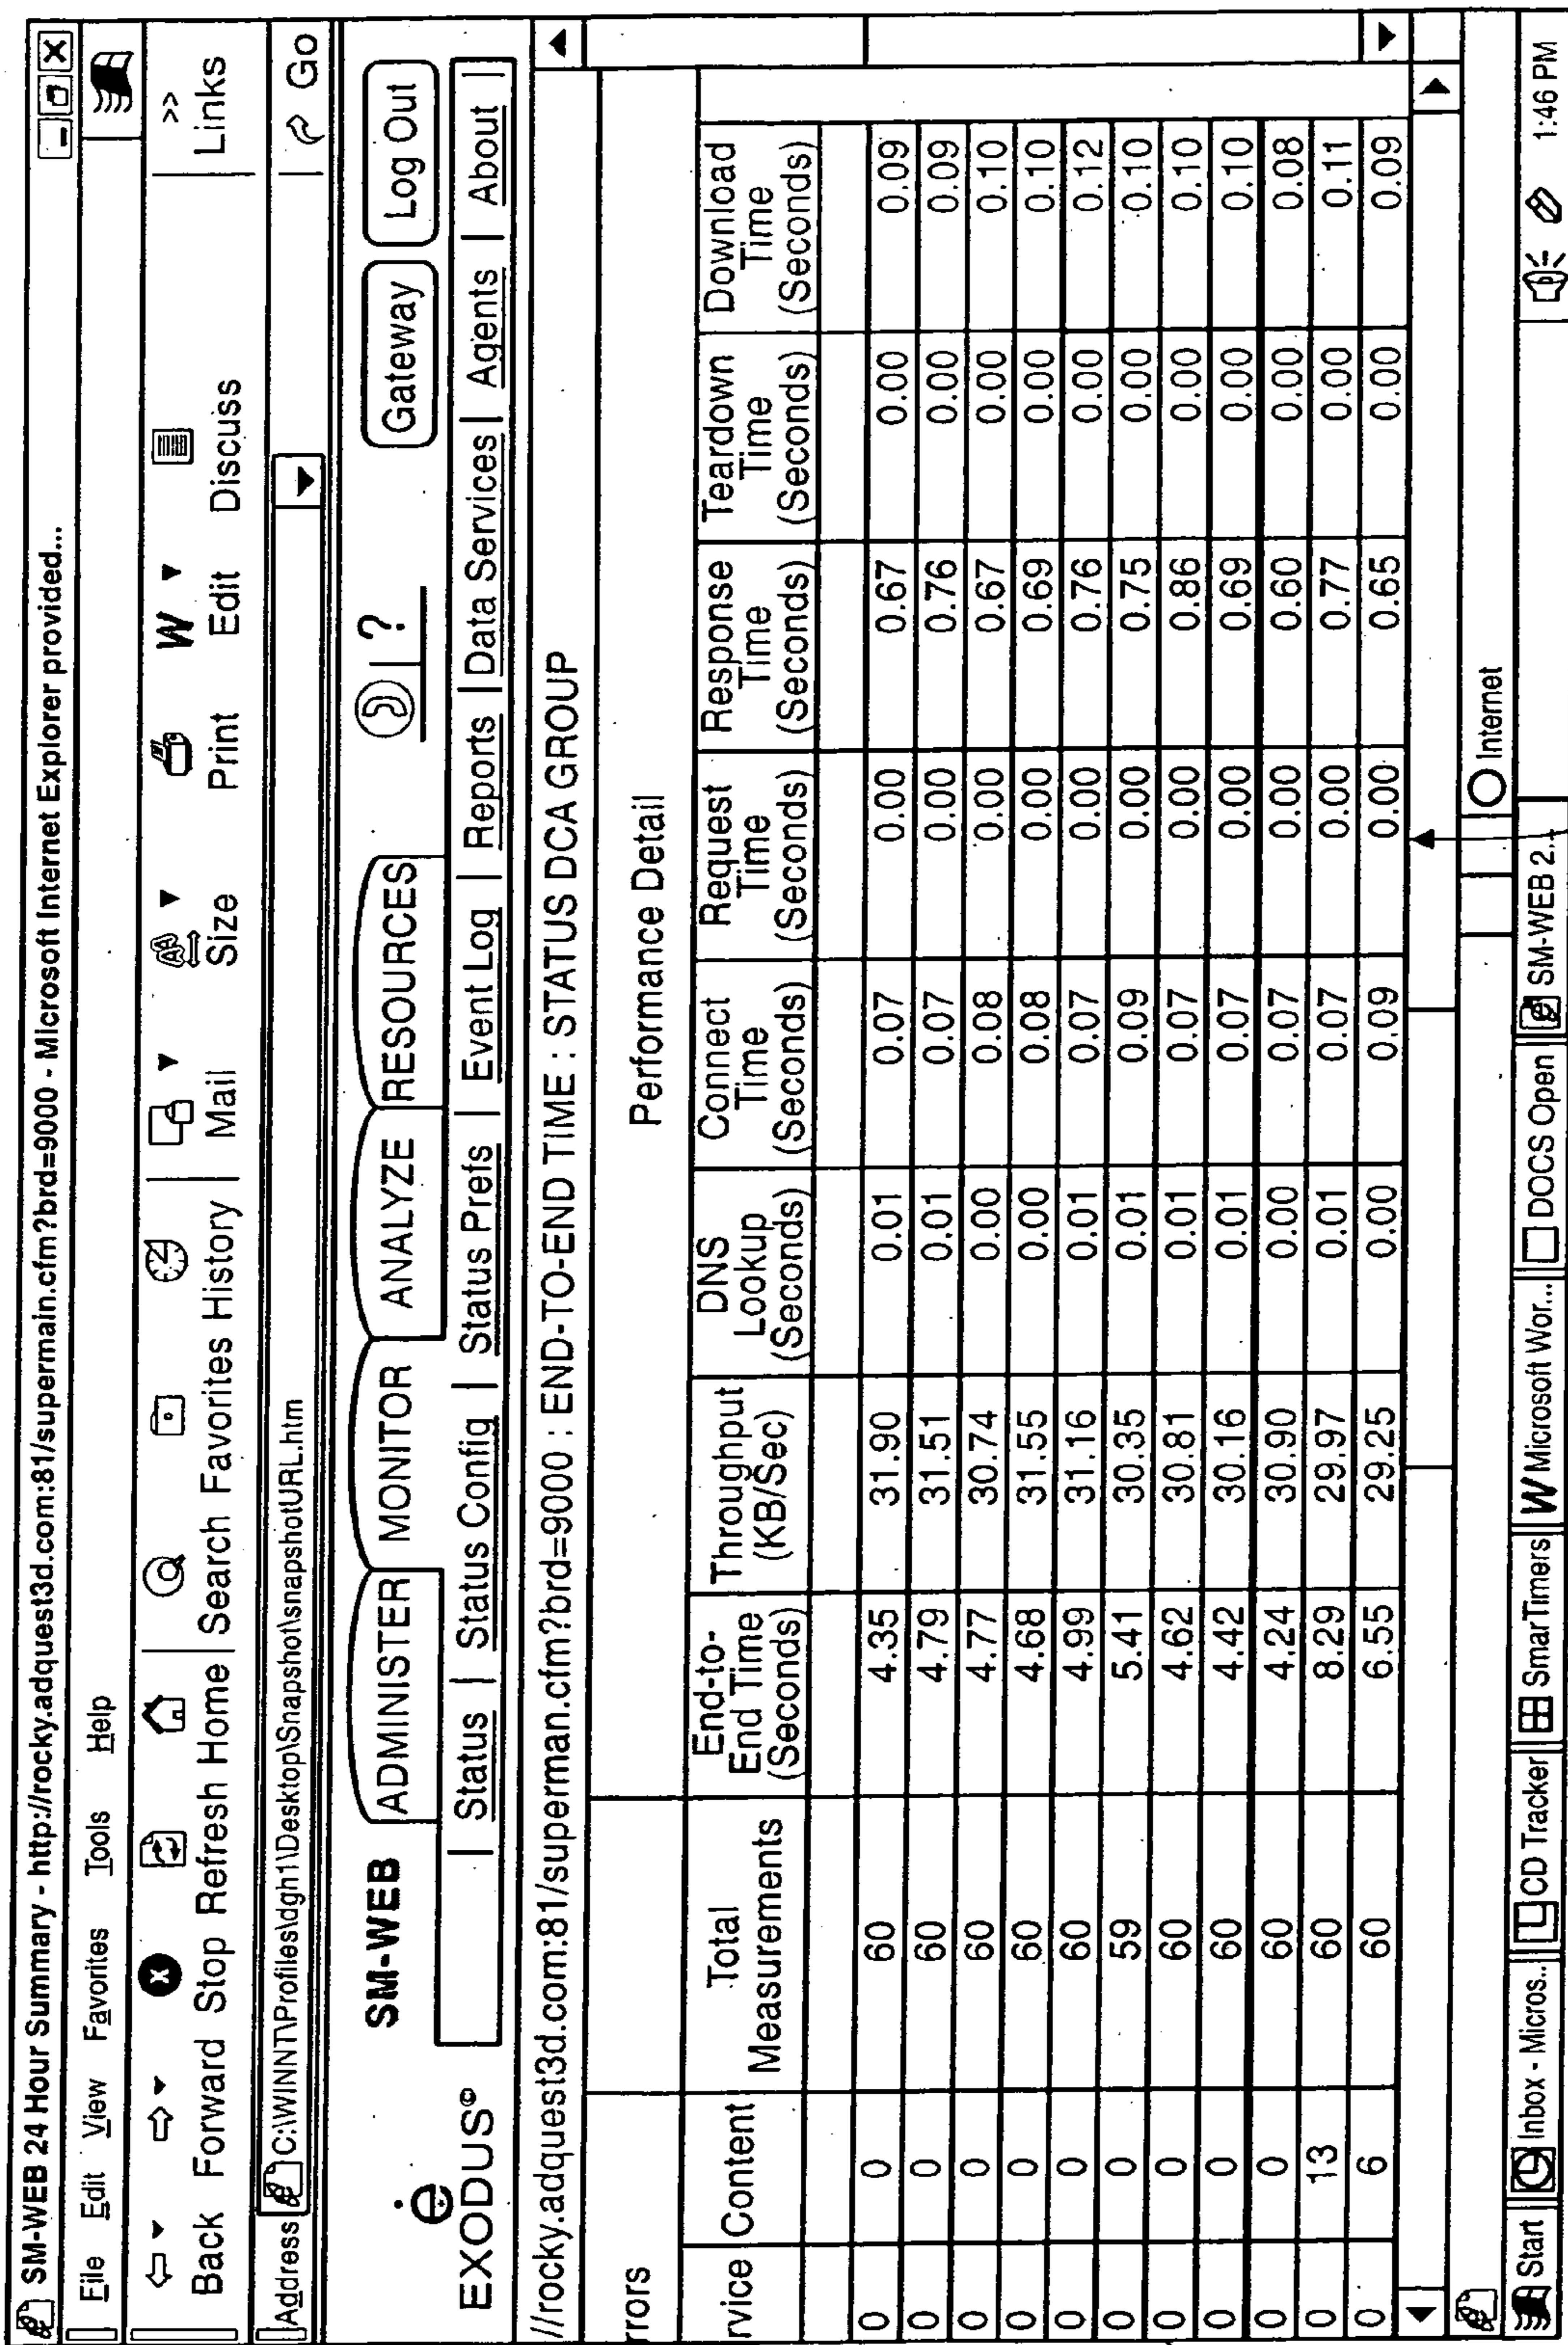 SM-WEB 24 Hour Summary - http://rocky.adquest3d.com:81/supermain.cfm?brd=9000 - Microsoft Internet Explorer provided...
File Edit View Favorites Tools Help
Back Forward Stop Refresh Home Search Favorites History Mail Size Print Edit Discuss Links >>
Address C:\WINNT\Profiles\dgh1\Desktop\Snapshot\snapshotURL.htm Go
EXODUS© SM-WEB ADMINISTER MONITOR ANALYZE RESOURCES ? Gateway Log Out
| Status | Status Config | Status Prefs | Event Log | Reports | Data Services | Agents | About |
//rocky.adquest3d.com:81/superman.cfm?brd=9000 : END-TO-END TIME : STATUS DCA GROUP
rrors Performance Detail
rvice Content Total Measurements End-to-End Time (Seconds) Throughput (KB/Sec) DNS Lookup (Seconds) Connect Time (Seconds) Request Time (Seconds) Response Time (Seconds) Teardown Time (Seconds) Download Time (Seconds)
0 0 60 4.35 31.90 0.01 0.07 0.00 0.67 0.00 0.09
0 0 60 4.79 31.51 0.01 0.07 0.00 0.76 0.00 0.09
0 0 60 4.77 30.74 0.00 0.08 0.00 0.67 0.00 0.10
0 0 60 4.68 31.55 0.00 0.08 0.00 0.69 0.00 0.10
0 0 60 4.99 31.16 0.01 0.07 0.00 0.76 0.00 0.12
0 0 59 5.41 30.35 0.01 0.09 0.00 0.75 0.00 0.10
0 0 60 4.62 30.81 0.01 0.07 0.00 0.86 0.00 0.10
0 0 60 4.42 30.16 0.01 0.07 0.00 0.69 0.00 0.10
0 0 60 4.24 30.90 0.00 0.07 0.00 0.60 0.00 0.08
0 13 60 8.29 29.97 0.01 0.07 0.00 0.77 0.00 0.11
0 6 60 6.55 29.25 0.00 0.09 0.00 0.65 0.00 0.09
Internet
Start Inbox - Micros.. CD Tracker SmarTimers W Microsoft Wor... DOCS Open SM-WEB 2... 1:46 PM